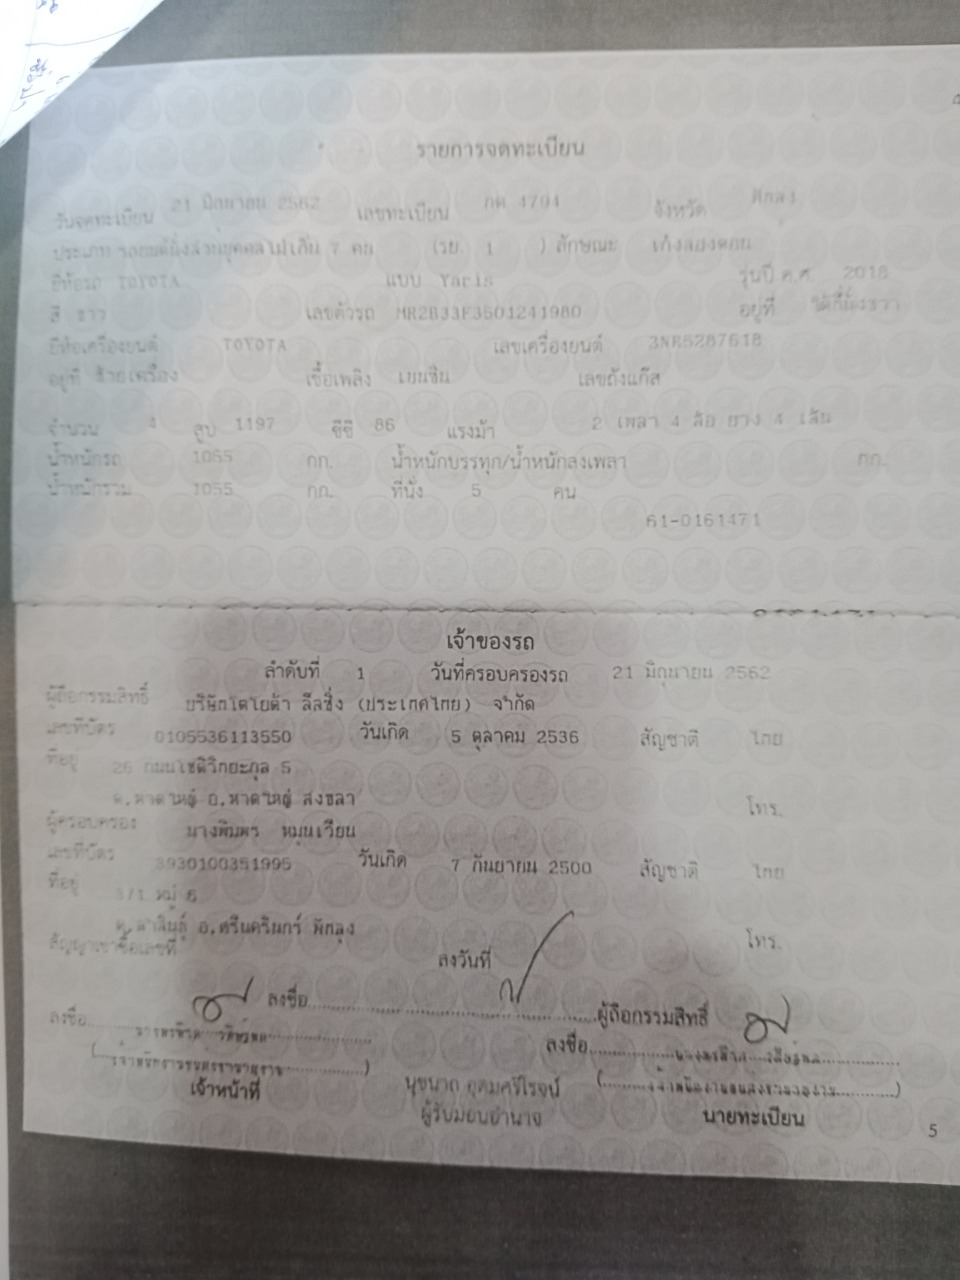 รายการจดทะเบียน
วันจดทะเบียน 21 มิถุนายน 2562 เลขทะเบียน กต 4794 จังหวัด พัทลุง
ประเภท รถยนต์นั่งส่วนบุคคลไม่เกิน 7 คน (รย. 1 ) ลักษณะ เก๋งสองตอน
ยี่ห้อรถ TOYOTA แบบ Yaris รุ่นปี ค.ศ. 2018
สี ขาว เลขตัวรถ MR2B33F3501241980 อยู่ที่ ใต้ที่นั่งขวา
ยี่ห้อเครื่องยนต์ TOYOTA เลขเครื่องยนต์ 3NR5287618
อยู่ที่ ซ้ายเครื่อง เชื้อเพลิง เบนซิน เลขถังแก๊ส
จำนวน 4 สูบ 1197 ซีซี 86 แรงม้า 2 เพลา 4 ล้อ ยาง 4 เส้น
น้ำหนักรถ 1055 กก. น้ำหนักบรรทุก/น้ำหนักลงเพลา กก.
น้ำหนักรวม 1055 กก. ที่นั่ง 5 คน
61-0161471
เจ้าของรถ
ลำดับที่ 1 วันที่ครอบครองรถ 21 มิถุนายน 2562
ผู้ถือกรรมสิทธิ์ บริษัทโตโยต้า ลีสซิ่ง (ประเทศไทย) จำกัด
เลขที่บัตร 0105536113550 วันเกิด 5 ตุลาคม 2536 สัญชาติ ไทย
ที่อยู่ 26 ถนนโชติวิทยะกุล 5
ต.หาดใหญ่ อ.หาดใหญ่ สงขลา โทร.
ผู้ครอบครอง นางพิมพร หมุนเวียน
เลขที่บัตร 3930100351995 วันเกิด 7 กันยายน 2500 สัญชาติ ไทย
ที่อยู่ 3/1 หมู่ 6
ต.ลำสินธุ์ อ.ศรีนครินทร์ พัทลุง โทร.
สัญญาเช่าซื้อเลขที่ ลงวันที่
ลงชื่อ ผู้ถือกรรมสิทธิ์
ลงชื่อ ลงชื่อ
เจ้าหน้าที่ นุชนาถ อุดมศรีโรจน์
ผู้รับมอบอำนาจ นายทะเบียน
5